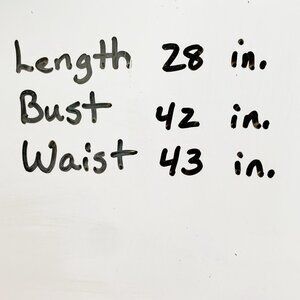 Length 28 in.
Bust 42 in.
Waist 43 in.